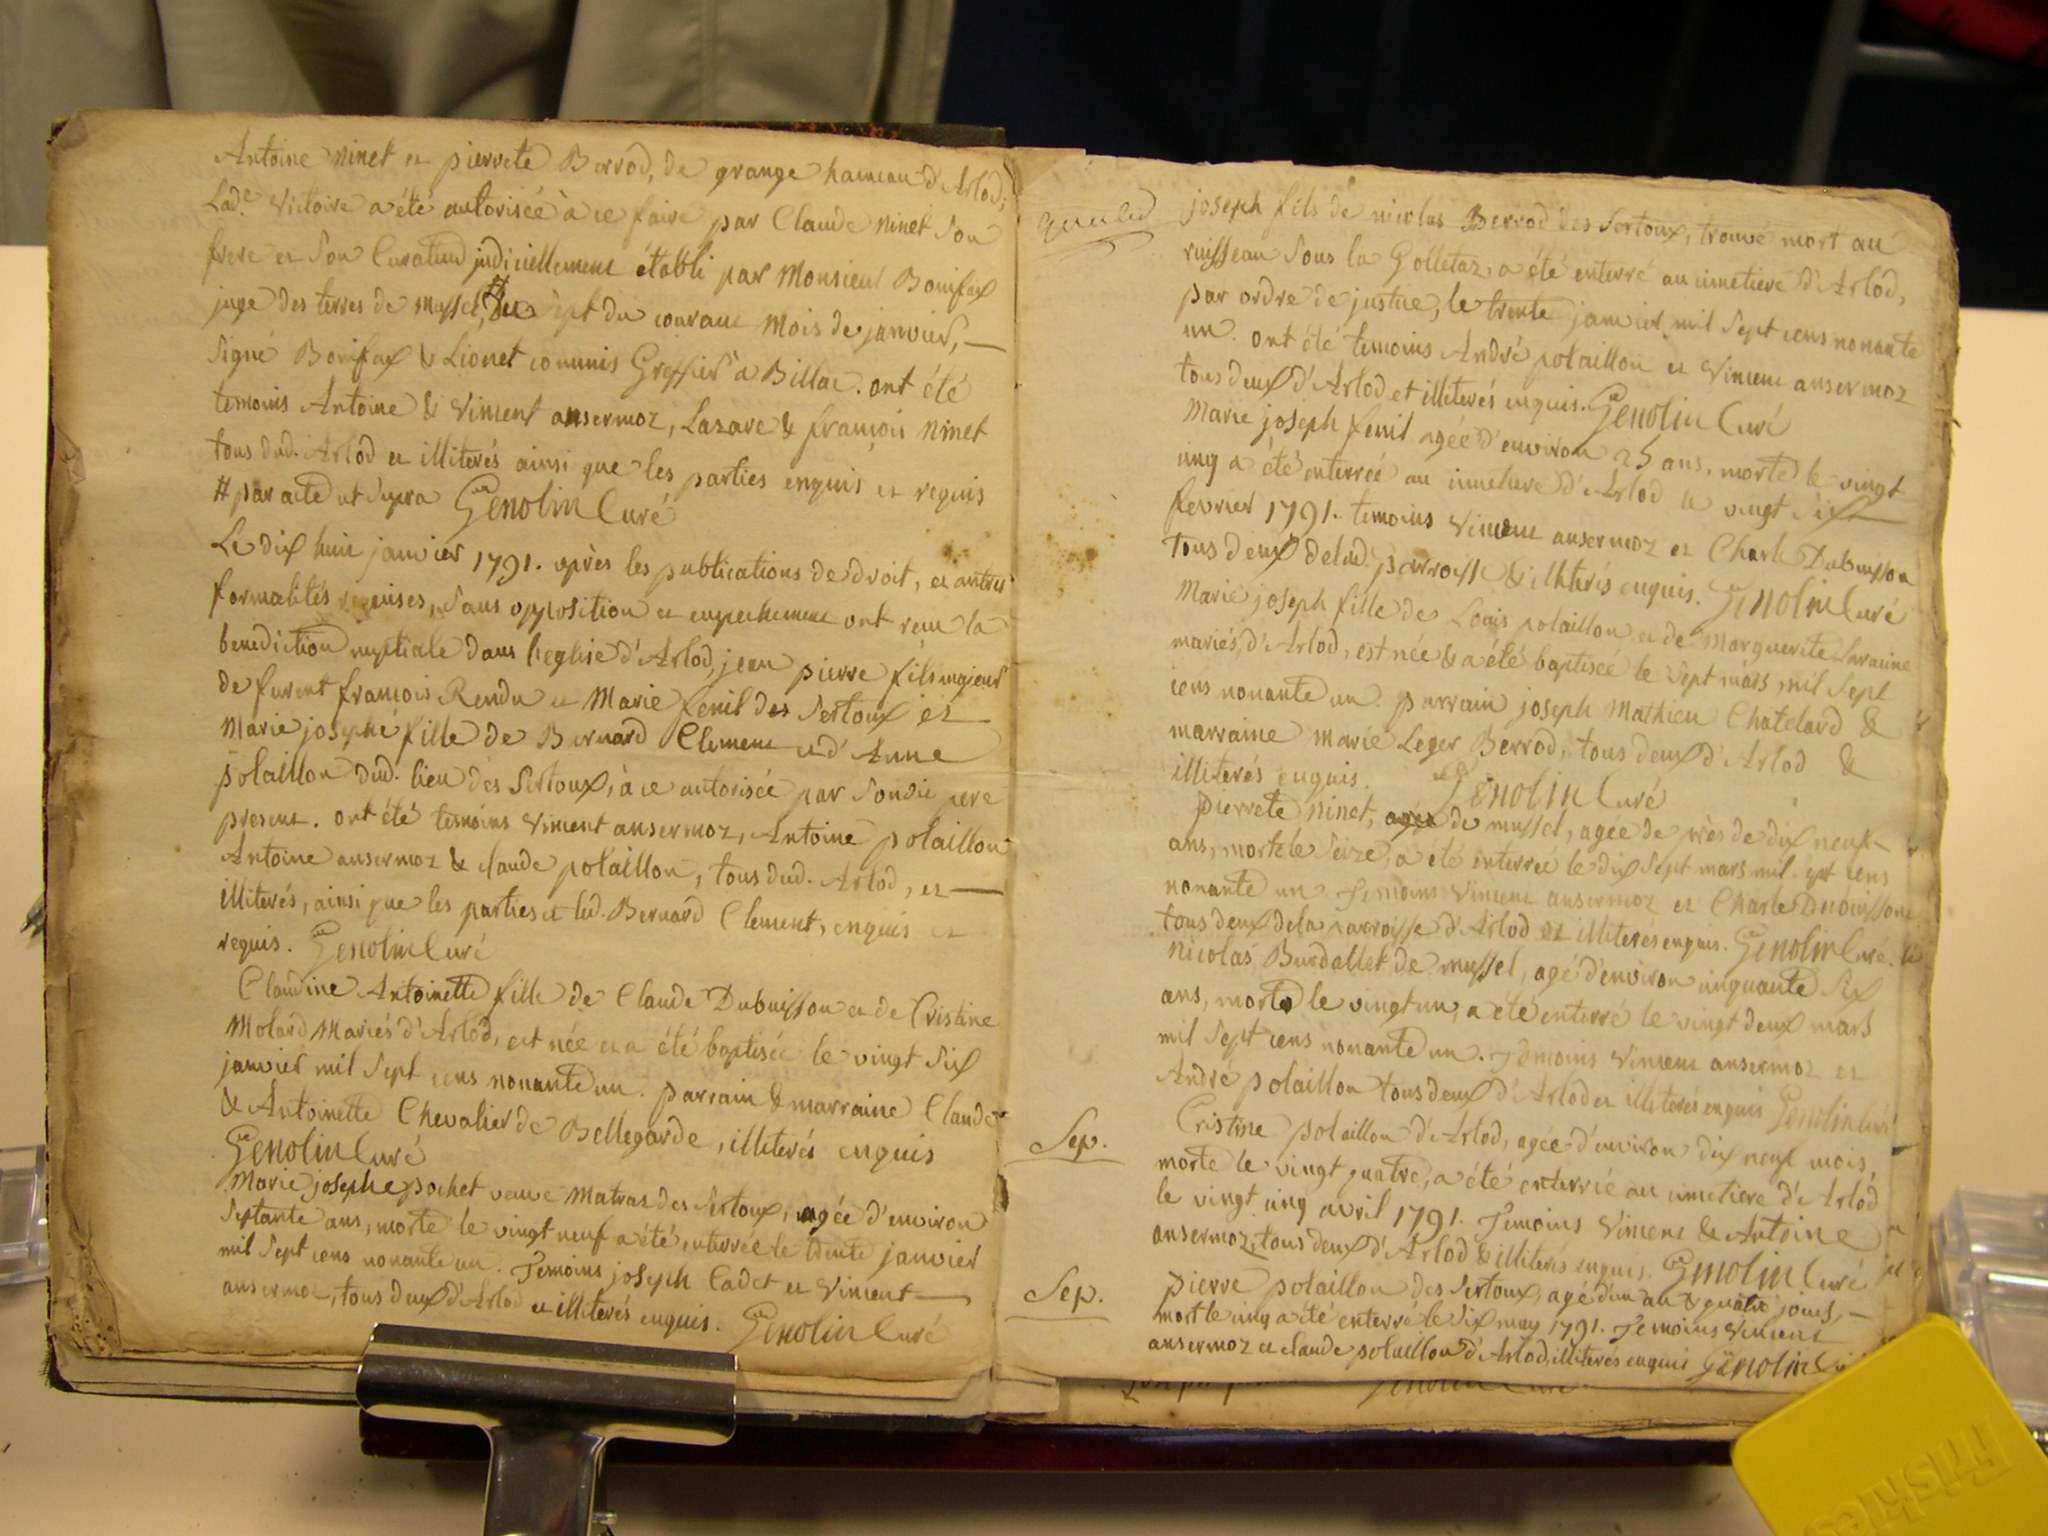 Antoine ninet et pierrete Berrod, de grange hameau d'Arlod,
Lad.e Victoire a été autorisée à ce faire par Claude ninet son
frere et son Curateur judiciellement établi par Monsieur Bonifax
juge des terres de mussel, # du sept du courant mois de janvier,
signé Bonifax & Lionet commis Greffier à Billac. ont été
temoins Antoine & Vincent ansermoz, Lazare & françois ninet
tous dud. Arlod et illiterés ainsi que les parties enquis et requis
# par acte ut supra Genolin Curé
Le dix huit janvier 1791. après les publications de droit, et autres
formalités requises, sans opposition et empechement ont recu la
benediction nuptiale dans l'eglise d'Arlod, jean pierre fils majeur
de furent françois Rendu et Marie fenil des Sertoux et
Marie josephe fille de Bernard Clement et d'Anne
polaillon dud. lieu des Sertoux, à ce autorisée par sondit pere
present. ont été temoins Vincent ansermoz, Antoine polaillon
Antoine ansermoz & claude polaillon, tous dud. Arlod, et
illiterés, ainsi que les parties et led. Bernard Clement, enquis et
requis. Genolin Curé
Claudine Antoinette fille de Claude Dubuisson et de Cristine
Molard Mariés d'Arlod, est née et a été baptisée le vingt six
janvier mil sept cens nonante un. parrain & marraine Claude
& Antoinette Chevalier de Bellegarde, illiterés enquis
Genolin Curé
Marie josephe pochet veuve Matras des Sertoux, agée d'environ
septante ans, morte le vingt neuf a été enterrée le trente janvier
mil sept cens nonante un. Temoins joseph Cadet et Vincent
ansermoz, tous deux d'Arlod et illiterés enquis. Genolin Curé
joseph fils de nicolas Berrod des Sertoux, trouvé mort au
ruisseau sous la Golletaz, a été enterré au cimetiere d'Arlod,
par ordre de justice, le trente janvier mil sept cens nonante
un. ont été temoins André polaillon et Vincent ansermoz
tous deux d'Arlod et illiterés enquis. Genolin Curé
Marie joseph fenil agée d'environ 25 ans, morte le vingt
cinq a été enterrée au cimetiere d'Arlod le vingt six
fevrier 1791. temoins Vincent ansermoz et Charle Dubuisson
tous deux delad. parroisse & illiterés enquis. Genolin Curé
Marie joseph fille de Louis polaillon et de Marguerite
mariés, d'Arlod, est née & a été baptisée le sept mars mil sept
cens nonante un. parrain joseph Mathieu Chatelard &
marraine marie Leger Berrod, tous deux d'Arlod &
illiterés enquis. Genolin Curé
pierrete ninet, de mussel, agée de près de dix neuf
ans, morte le seize, a été enterrée le dix sept mars mil sept cens
nonante un Temoins Vincent ansermoz et Charle Dubuisson
tous deux de la parroisse d'Arlod et illiterés enquis. Genolin Curé.
Nicolas Burdallet de mussel, agé d'environ cinquante six
ans, mort le vingt un, a été enterré le vingt deux mars
mil sept cens nonante un. Temoins Vincent ansermoz et
André polaillon tous deux d'Arlod et illiterés enquis Genolin Curé
Sep.
Cristine polaillon d'Arlod, agée d'environ dix neuf mois,
morte le vingt quatre, a été enterrée au cimetiere d'Arlod
le vingt cinq avril 1791. Temoins Vincent & Antoine
ansermoz, tous deux d'Arlod & illiterés enquis. Genolin Curé
Sep.
pierre polaillon des Sertoux, agé d'un an & quatre jours,
mort le cinq a été enterré le six may 1791. Temoins Vincent
ansermoz et claude polaillon d'Arlod, illiterés enquis Genolin
Friskies